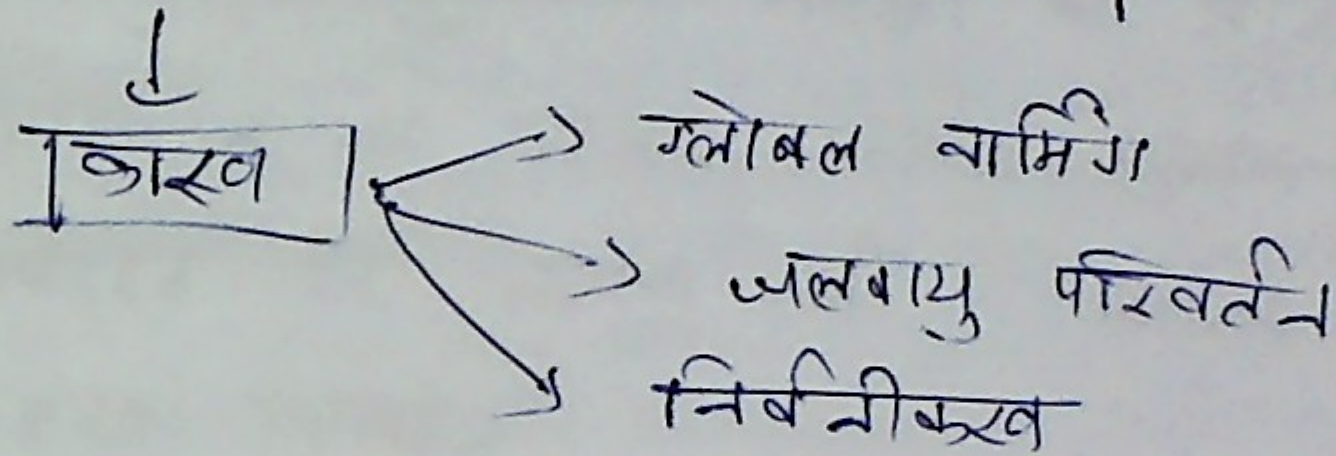 कारण
ग्लोबल वार्मिंग
जलवायु परिवर्तन
निर्वनीकरण